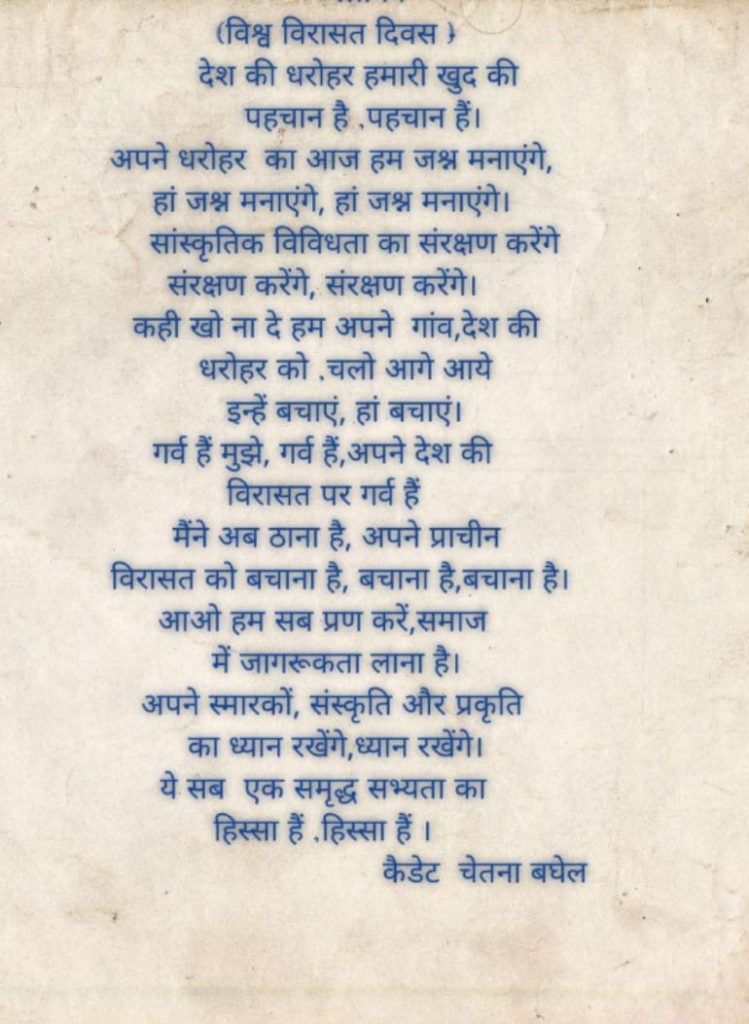 (विश्व विरासत दिवस )
देश की धरोहर हमारी खुद की
पहचान है .पहचान हैं।
अपने धरोहर का आज हम जश्न मनाएंगे,
हां जश्न मनाएंगे, हां जश्न मनाएंगे।
सांस्कृतिक विविधता का संरक्षण करेंगे
संरक्षण करेंगे, संरक्षण करेंगे।
कही खो ना दे हम अपने गांव,देश की
धरोहर को .चलो आगे आये
इन्हें बचाएं, हां बचाएं।
गर्व हैं मुझे, गर्व हैं,अपने देश की
विरासत पर गर्व हैं
मैंने अब ठाना है, अपने प्राचीन
विरासत को बचाना है, बचाना है,बचाना है।
आओ हम सब प्रण करें,समाज
में जागरूकता लाना है।
अपने स्मारकों, संस्कृति और प्रकृति
का ध्यान रखेंगे,ध्यान रखेंगे।
ये सब एक समृद्ध सभ्यता का
हिस्सा हैं .हिस्सा हैं ।
कैडेट चेतना बघेल